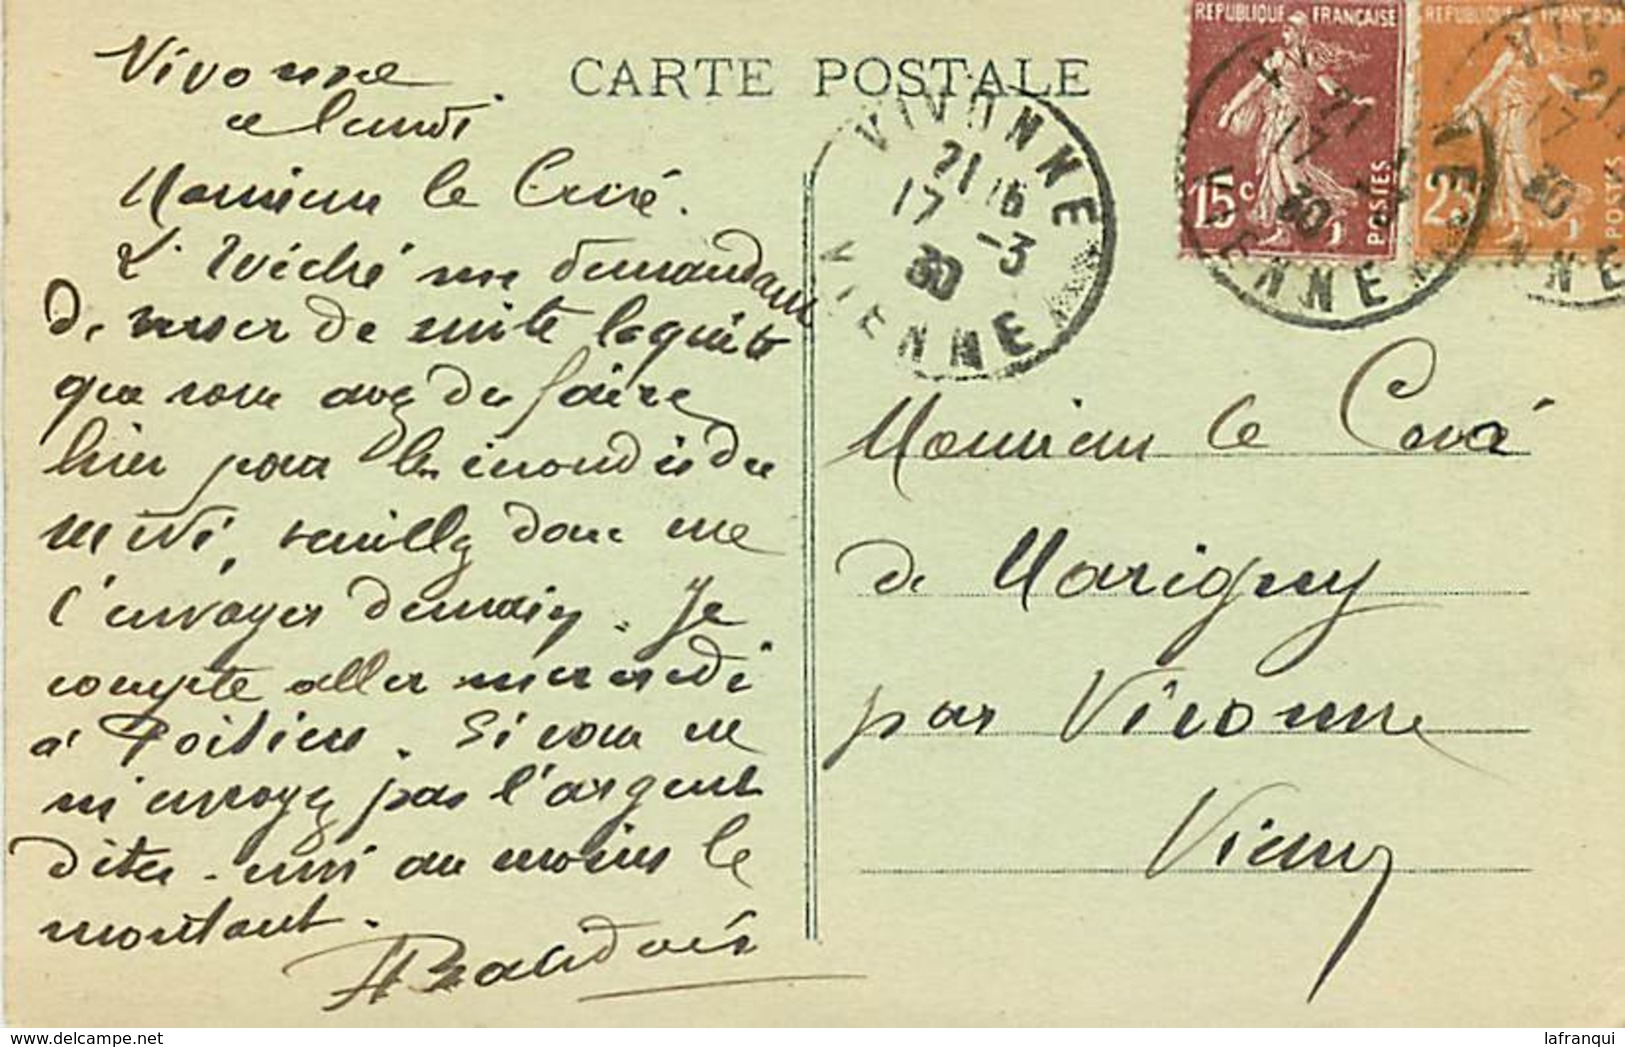 CARTE POSTALE
Vivonne
ce lundi
Monsieur le Curé.
L'Evêché me demandant
de verser de suite la quête
que vous avez dû faire
hier pour les inondés du
midi, veuillez donc me
l'envoyer demain. Je
compte aller mercredi
à Poitiers. Si vous ne
m'envoyez pas l'argent
dites-moi au moins le
montant.
REPUBLIQUE FRANÇAISE
15c
POSTES
REPUBLIQUE FRANÇAISE
25
POSTES
VIVONNE
21 16
17 -3
30
VIENNE
Monsieur le Curé
de Marigny
par Vivonne
Vienne
delcampe.net
lafranqui